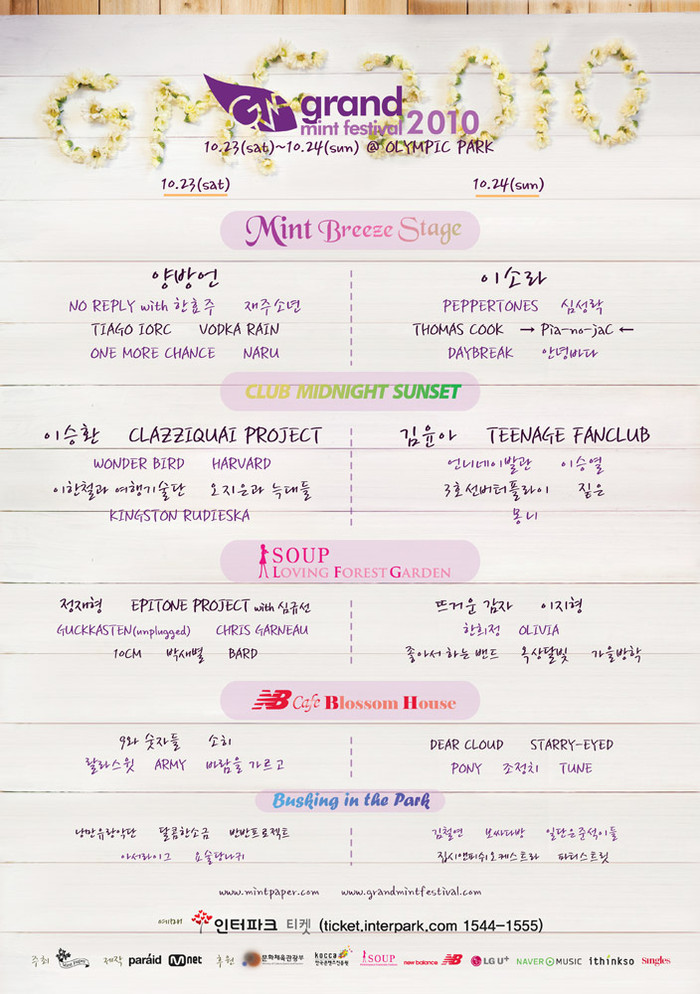 GMF2010
GMF grand
mint festival 2010
10.23(sat)~10.24(sun) @ OLYMPIC PARK
10.23(sat) 10.24(sun)
Mint Breeze Stage
양방언 이소라
NO REPLY with 한효주 재주소년 PEPPERTONES 심성락
TIAGO IORC VODKA RAIN THOMAS COOK → Pia-no-jaC ←
ONE MORE CHANCE NARU DAYBREAK 안녕바다
CLUB MIDNIGHT SUNSET
이승환 CLAZZIQUAI PROJECT 김윤아 TEENAGE FANCLUB
WONDER BIRD HARVARD 언니네이발관 이승열
이한철과 여행기술단 오지은과 늑대들 3호선버터플라이 짙은
KINGSTON RUDIESKA 몽니
SOUP
LOVING FOREST GARDEN
정재형 EPITONE PROJECT with 심규선 뜨거운 감자 이지형
GUCKKASTEN(unplugged) CHRIS GARNEAU 한희정 OLIVIA
10CM 박새별 BARD 좋아서 하는 밴드 옥상달빛 가을방학
NB Cafe Blossom House
9와 숫자들 소히 DEAR CLOUD STARRY-EYED
랄라스윗 ARMY 바람을 가르고 PONY 조정치 TUNE
Busking in the Park
낭만유랑악단 달콤한소금 반반프로젝트 김철연 보싸다방 일단은준석이들
아서라이그 요술당나귀 집시앤피쉬오케스트라 파티스트릿
www.mintpaper.com www.grandmintfestival.com
예매처 인터파크 티켓 (ticket.interpark.com 1544-1555)
주최 mint paper 제작 paráid Mnet 후원 문화체육관광부 kocca 한국콘텐츠진흥원 SOUP new balance NB LG U+ NAVER MUSIC ithinkso Singles